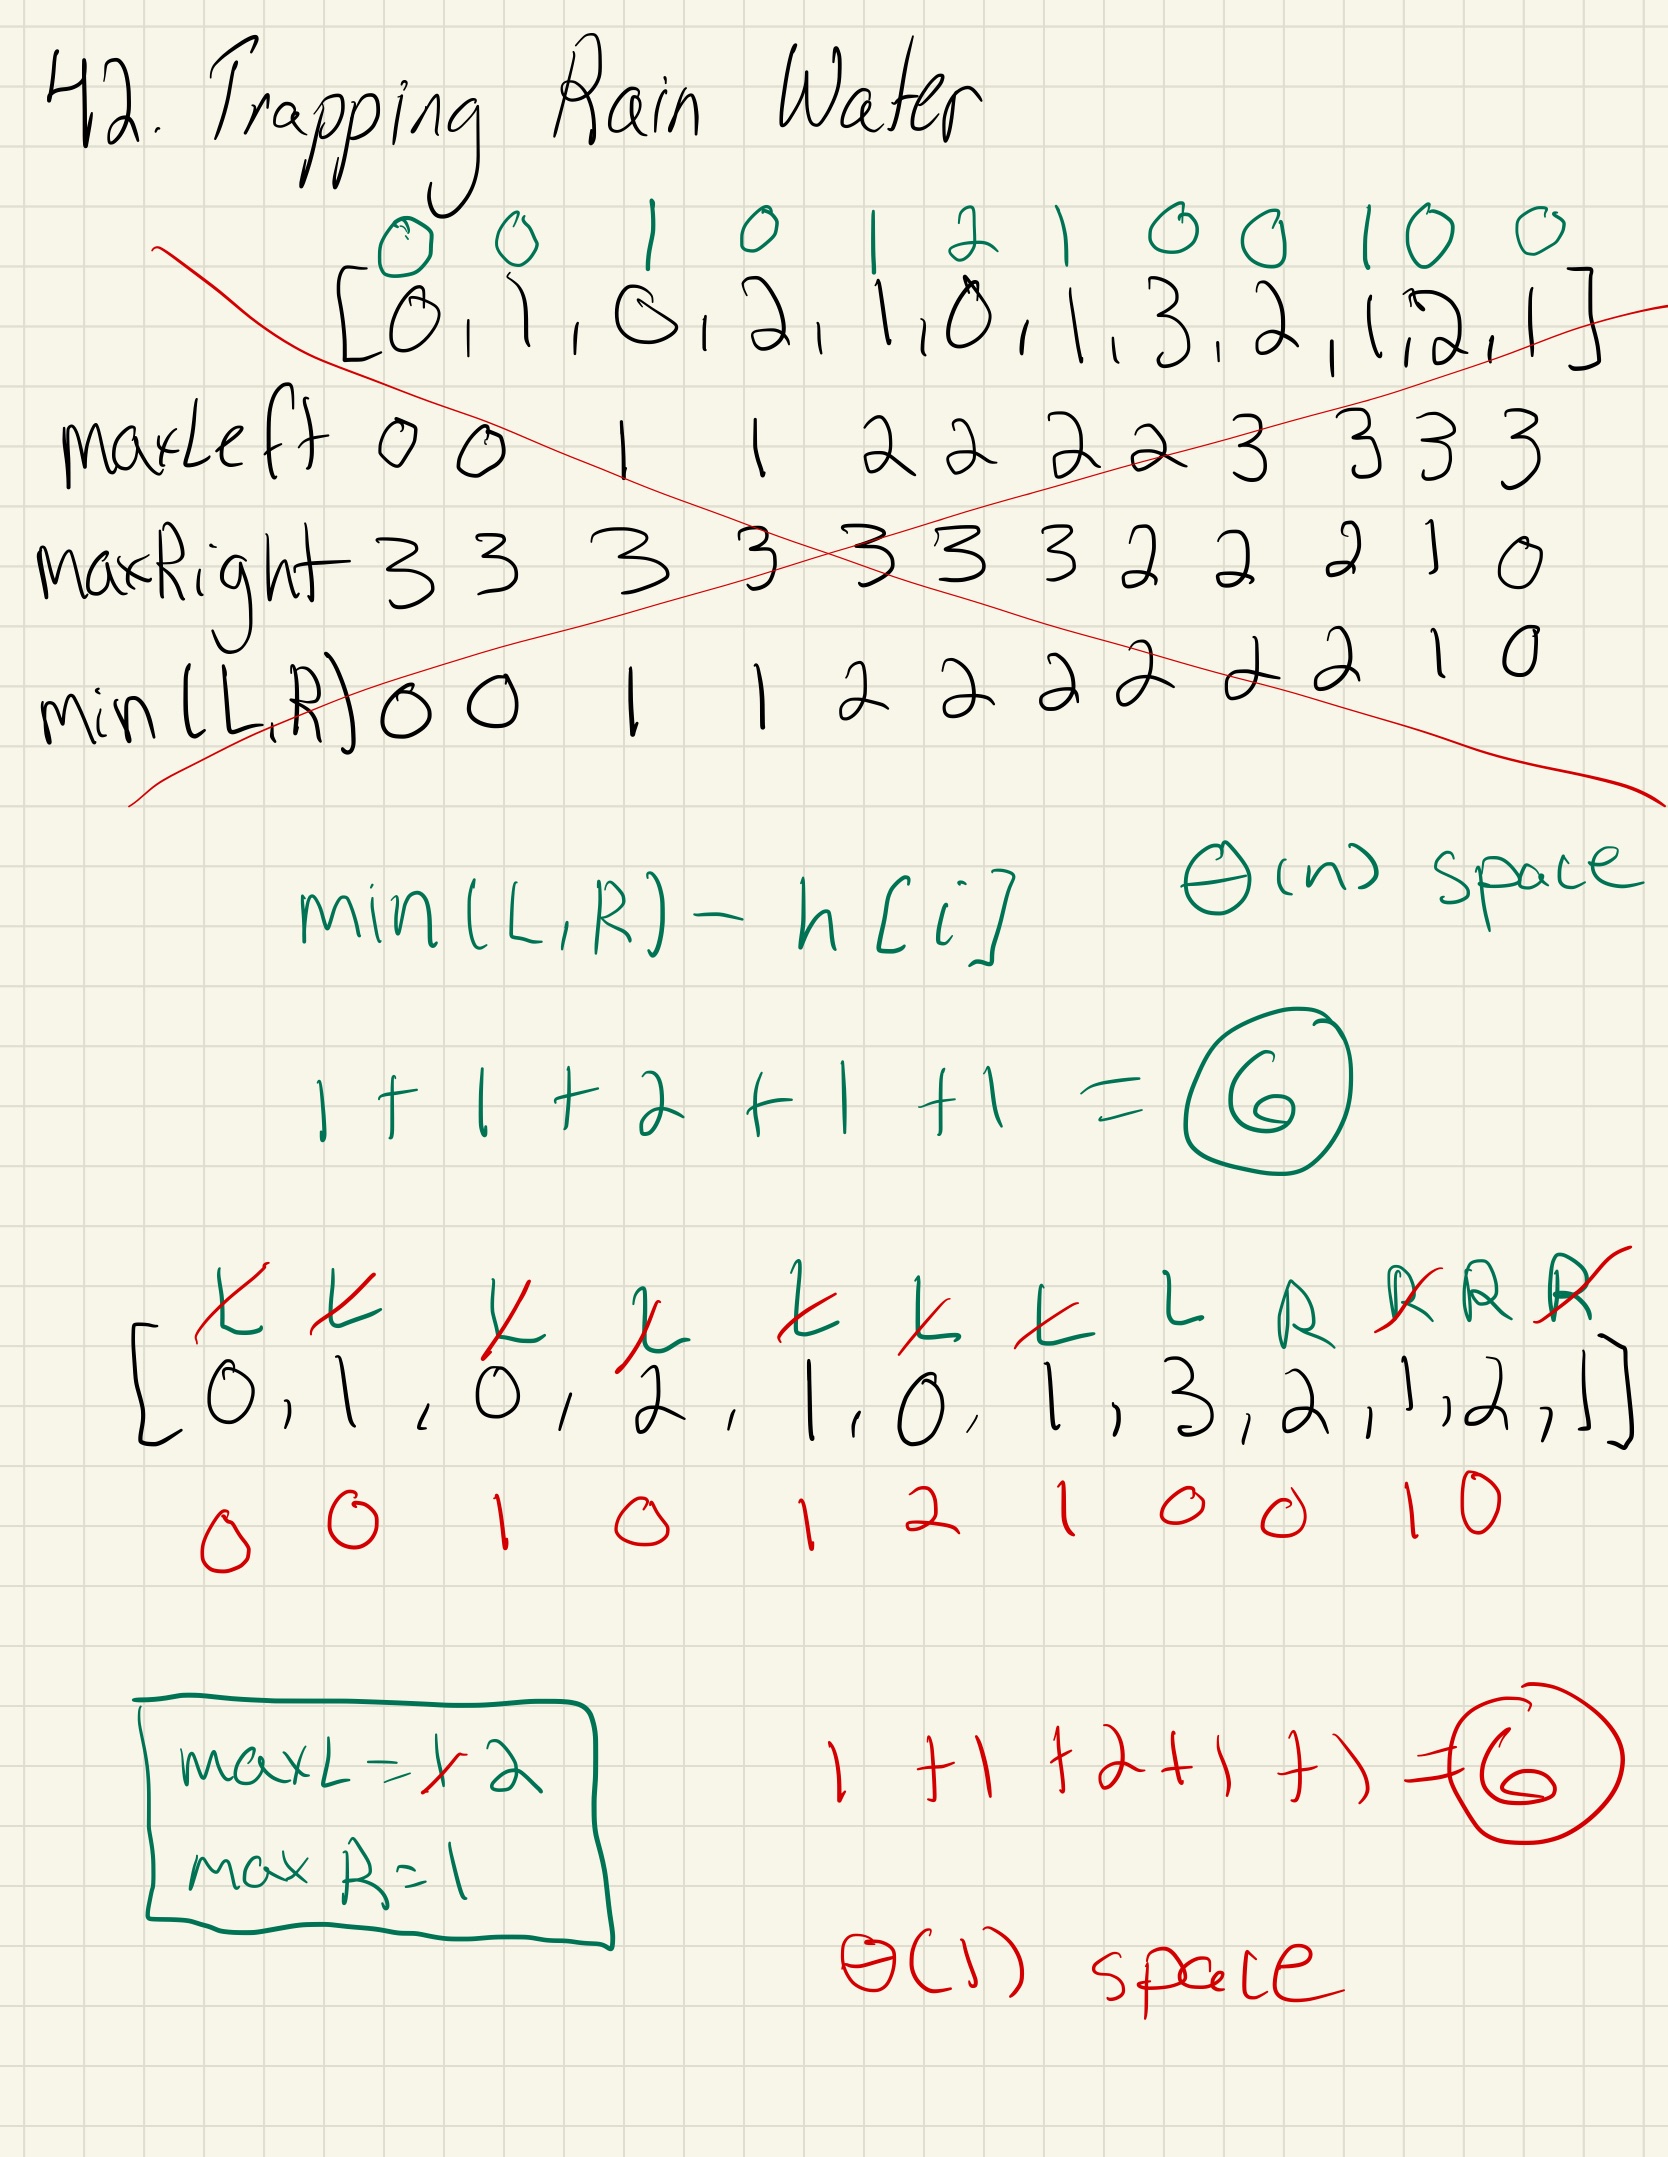 42. Trapping Rain Water
0 0 1 0 1 2 1 0 0 1 0 0
[0, 1, 0, 2, 1, 0, 1, 3, 2, 1, 2, 1]
maxLeft 0 0 1 1 2 2 2 2 3 3 3 3
maxRight 3 3 3 3 3 3 3 2 2 2 1 0
min(L,R) 0 0 1 1 2 2 2 2 2 2 1 0
min(L,R) - h[i]
θ(n) space
1 + 1 + 2 + 1 + 1 = 6
L L L L L L L L R R R R
[0, 1, 0, 2, 1, 0, 1, 3, 2, 1, 2, 1]
0 0 1 0 1 2 1 0 0 1 0
maxL = 1 2
maxR = 1
1 + 1 + 2 + 1 + 1 = 6
θ(1) space